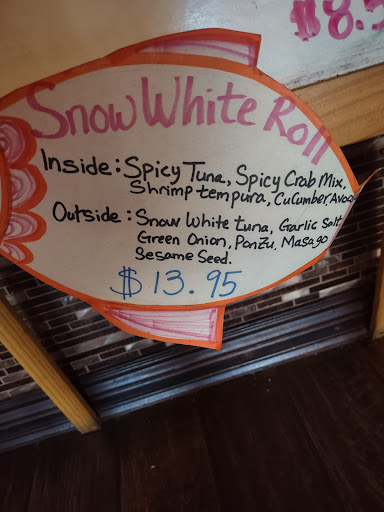 $8.5
Snow White Roll
Inside: Spicy Tuna, Spicy Crab Mix,
Shrimp tempura, Cucumber, Avoca
Outside: Snow White tuna, Garlic Salt
Green Onion, Ponzu, Masago
Sesame Seed.
$13.95